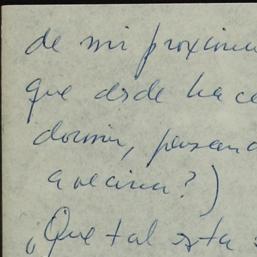 de mi proxim
que desde hace
dormir, pensan
a vecina?)
¿Que tal esta s